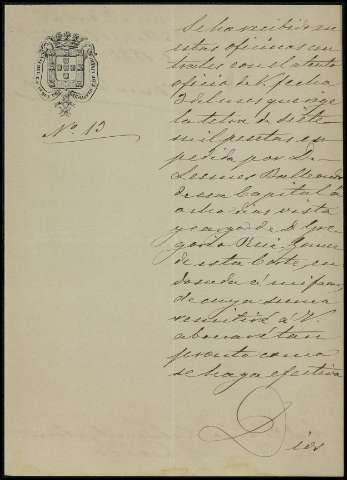 Nº 13
Se ha recibido en
estas oficinas cen
trales con el atento
oficio de V. fecha
3 del mes que rige
la letra de siete
mil pesetas ex
pedida por D.
de esa Capital á
ocho dias vista
y cargo de D. Gre
gorio Ruiz
de esta Corte, en
dosada á mi favor
de cuya suma
remitirá á V.
abonaré tan
pronto como
se haga efectiva
Dios